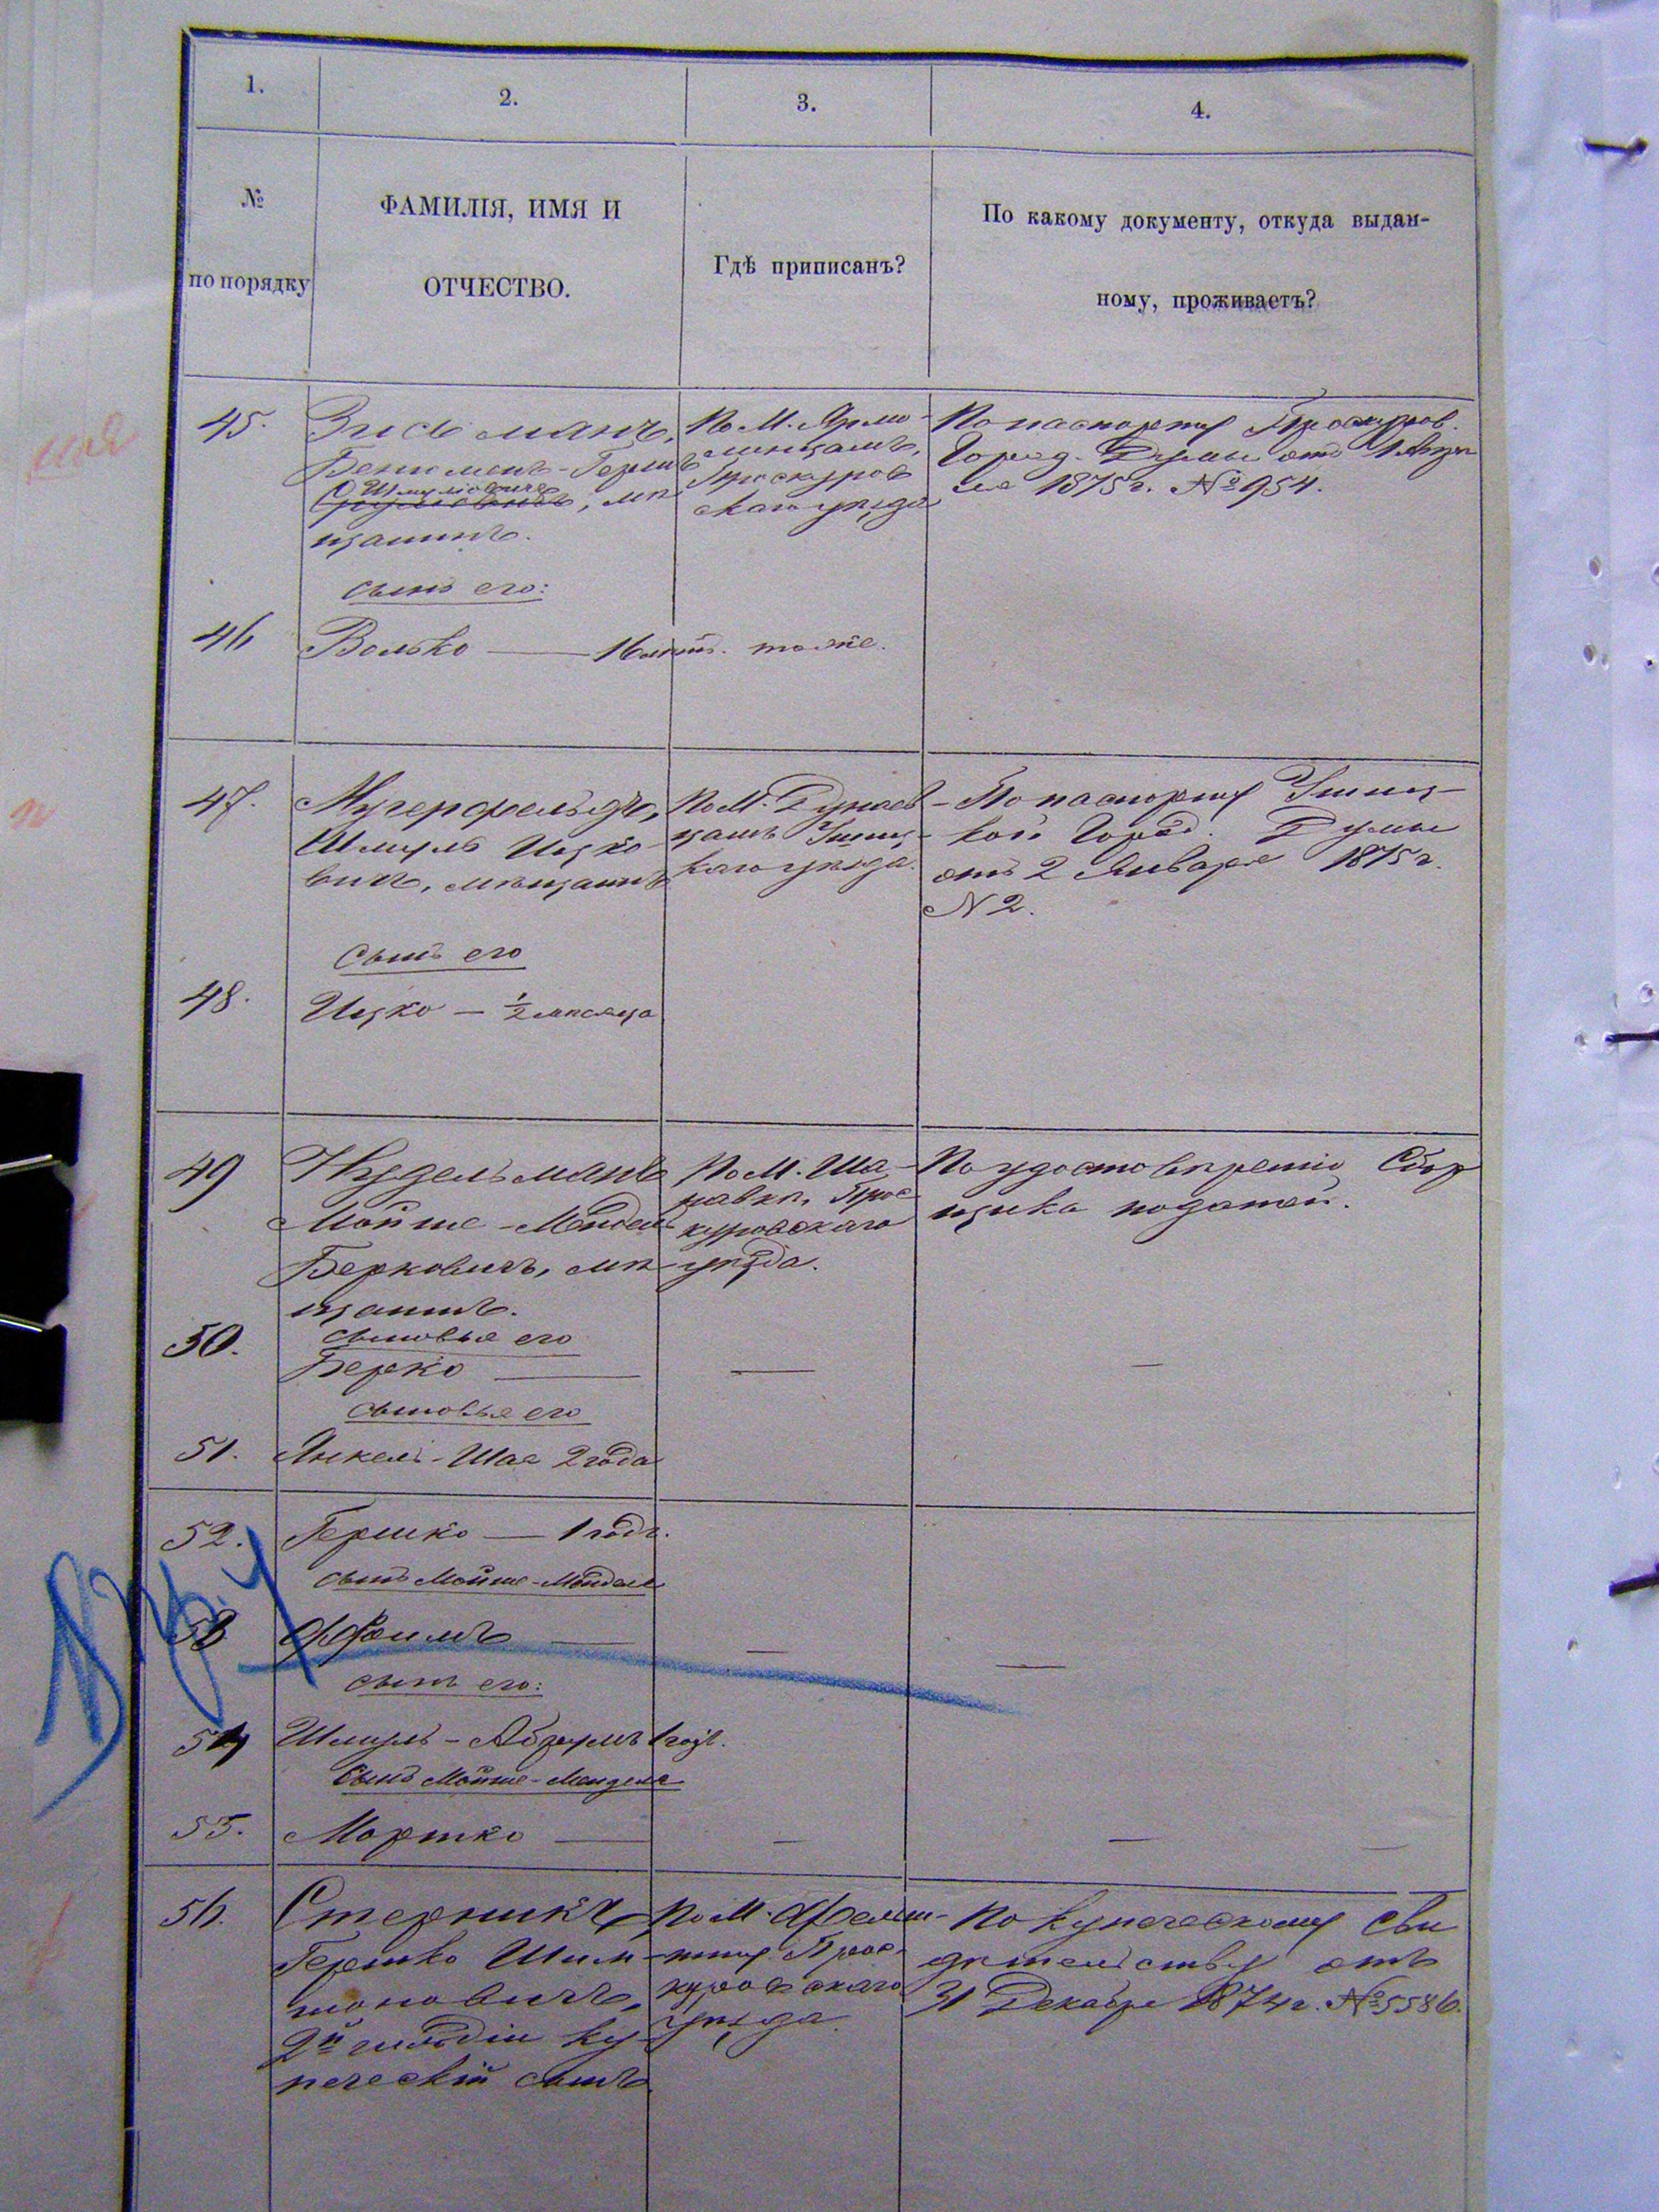 1.
2.
3.
4.
№
по порядку
ФАМИЛІЯ, ИМЯ И
ОТЧЕСТВО.
Гдѣ приписанъ?
По какому документу, откуда выдан-
ному, проживаетъ?
45.
Зисьманъ,
Беніоменъ-Гершъ
Шмулевичъ
мѣ
щанинъ.
По М. Ярмо-
линцамъ,
Проскуров
скаго уѣзда
По паспорту Проскуров.
Город. Думы отъ 1 Апрѣ
ля 1875 г. № 954.
сынъ его:
46
Волько — 16 лѣтъ. тоже.
47.
Мугерфельдъ,
Шмуль Ицко-
вичъ, мѣщанинъ
По М. Дунаев-
цамъ Ушиц-
каго уѣзда.
По паспорту Ушиц-
кой Город. Думы
отъ 2 Января 1875 г.
N 2.
сынъ его
48.
Ицко — ½ мѣсяца
49
Нудельманъ
Мойше-Мендель
Берковичъ, мѣ-
щанинъ.
По М. Ша-
равкѣ, Прос-
куровскаго
уѣзда.
По удостовѣренію Сбор
щика податей.
сыновья его
50.
Берко — — —
сыновья его
51.
Янкель-Шая 2 года
52.
Гершко — 1 годъ.
сынъ Мойше-Менделя
53
Фроимъ — — —
сынъ его:
54
Шмуль-Абрумъ 1 годъ.
Сынъ Мойше-Менделя
55.
Мортко — — —
56.
Стерникъ,
Гершко Шим-
шоновичъ,
2й гильдіи ку-
печескій сынъ
По М. Фельш-
тину Прос-
куровскаго
уѣзда.
По купеческому сви
дѣтельству отъ
31 Декабря 1874 г. № 5586.